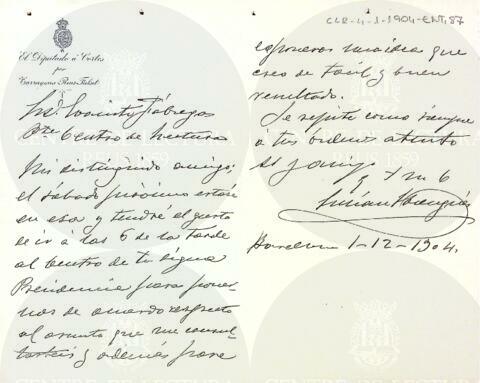 El Diputado á Cortes
por
Tarragona Reus Falset
CLR-4-1-1904-ENT,87
Sr. Evaristo Fábregas
Pte Centro de Lectura
Mi distinguido amigo;
el sábado próximo estaré
en esa y tendré el gusto
de ir á las 6 de la tarde
al Centro de tu digna
Presidencia para poner
nos de acuerdo respecto
al asunto que me consul
tasteis y además para
exponeros una idea que
creo de fácil y buen
resultado.
Se repite como siempre
á tus órdenes atento
SS y amigo
Barcelona 1-12-1904.